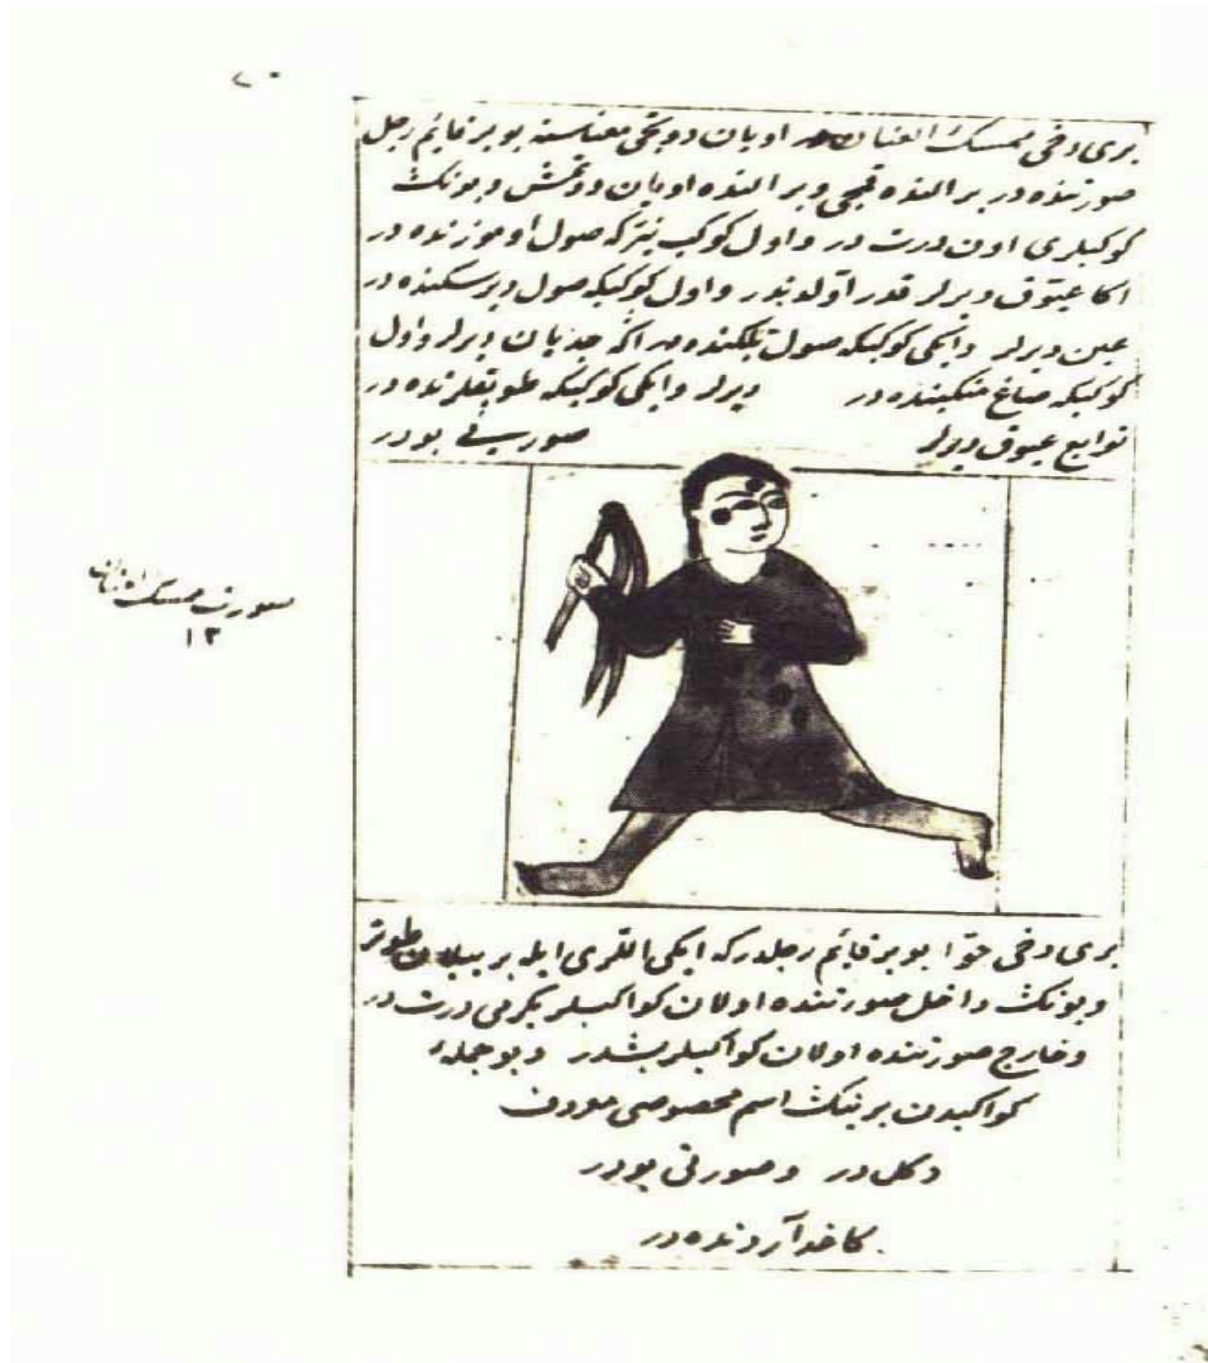 بری دخی ممسک العنان در اویان دوتیجی معناسنه بو بر قایم رجل
صورتنده در بر النده قمچی و بر النده اویان دوتمش و بونک
کوکبلری اون درت در و اول کوکب نیّر که صول اوموزنده در
اکا عیّوق دیرلر قدر اوّلدندر و اول کوکبکه صول دیرسکنده در
عین دیرلر و ایکی کوکبکه صول بلکنده در اکا جدیان دیرلر و اول
کوکبکه صاغ منکبنده در دیرلر و ایکی کوکبکه طوپقلرنده در
توابع عیوق دیرلر صورتی بودر
صورت ممسک العنان
١٣
بری دخی حوّا بو بر قایم رجلدر که ایکی اللری ایله بر ییلان طوتر
و بونک داخل صورتنده اولان کواکبلر یکرمی درت در
و خارج صورتنده اولان کواکبلر بشدر و بو جملهٔ
کواکبدن برینک اسم مخصوصی
دکل در و صورتی بودر
کاغد آردنده در